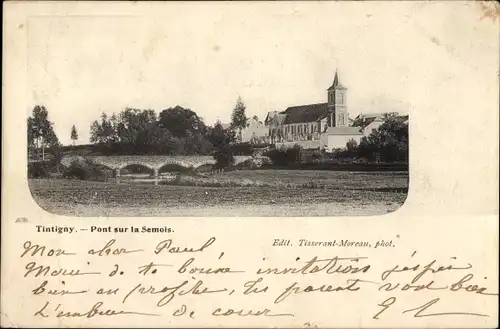 Tintigny. — Pont sur la Semois.
Edit. Tisserant-Moreau, phot.
Mon cher Paul
Merci de ta bonne invitation j'espère
bien en profiter, tes parents vont bien
t'embrasse de cœur